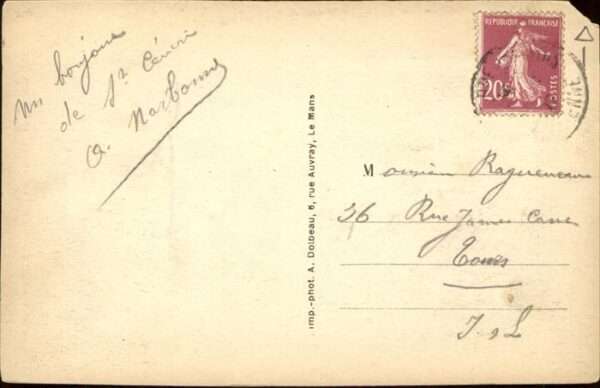 Un bonjour
de St Céneri
A. Narbonne
Imp.-phot. A. Dolbeau, 6, rue Auvray, Le Mans
RÉPUBLIQUE FRANÇAISE
20c
POSTES
Monsieur Ragueneau
26 Rue James Cane
Tours
I & L